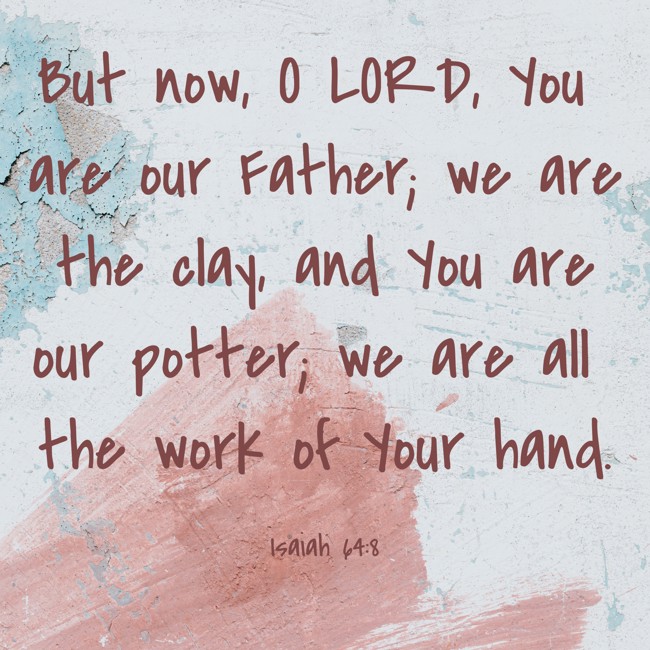 But now, O LORD, You
are our Father; we are
the clay, and You are
our potter; we are all
the work of Your hand.
Isaiah 64:8